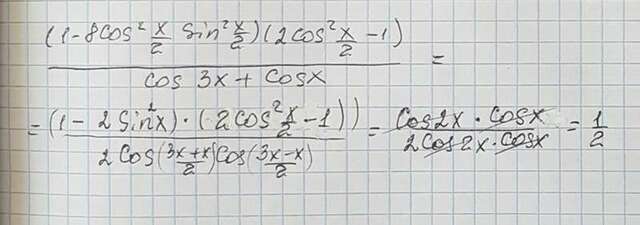 (1-8cos² x/2 sin² x/2)(2cos² x/2 -1)
=
cos 3x + cosx
= (1 - 2 sin²x) · (2cos² x/2 - 1)) = cos2x · cosx = 1
2 cos(3x+x/2)cos(3x-x/2) 2cos2x · cosx 2